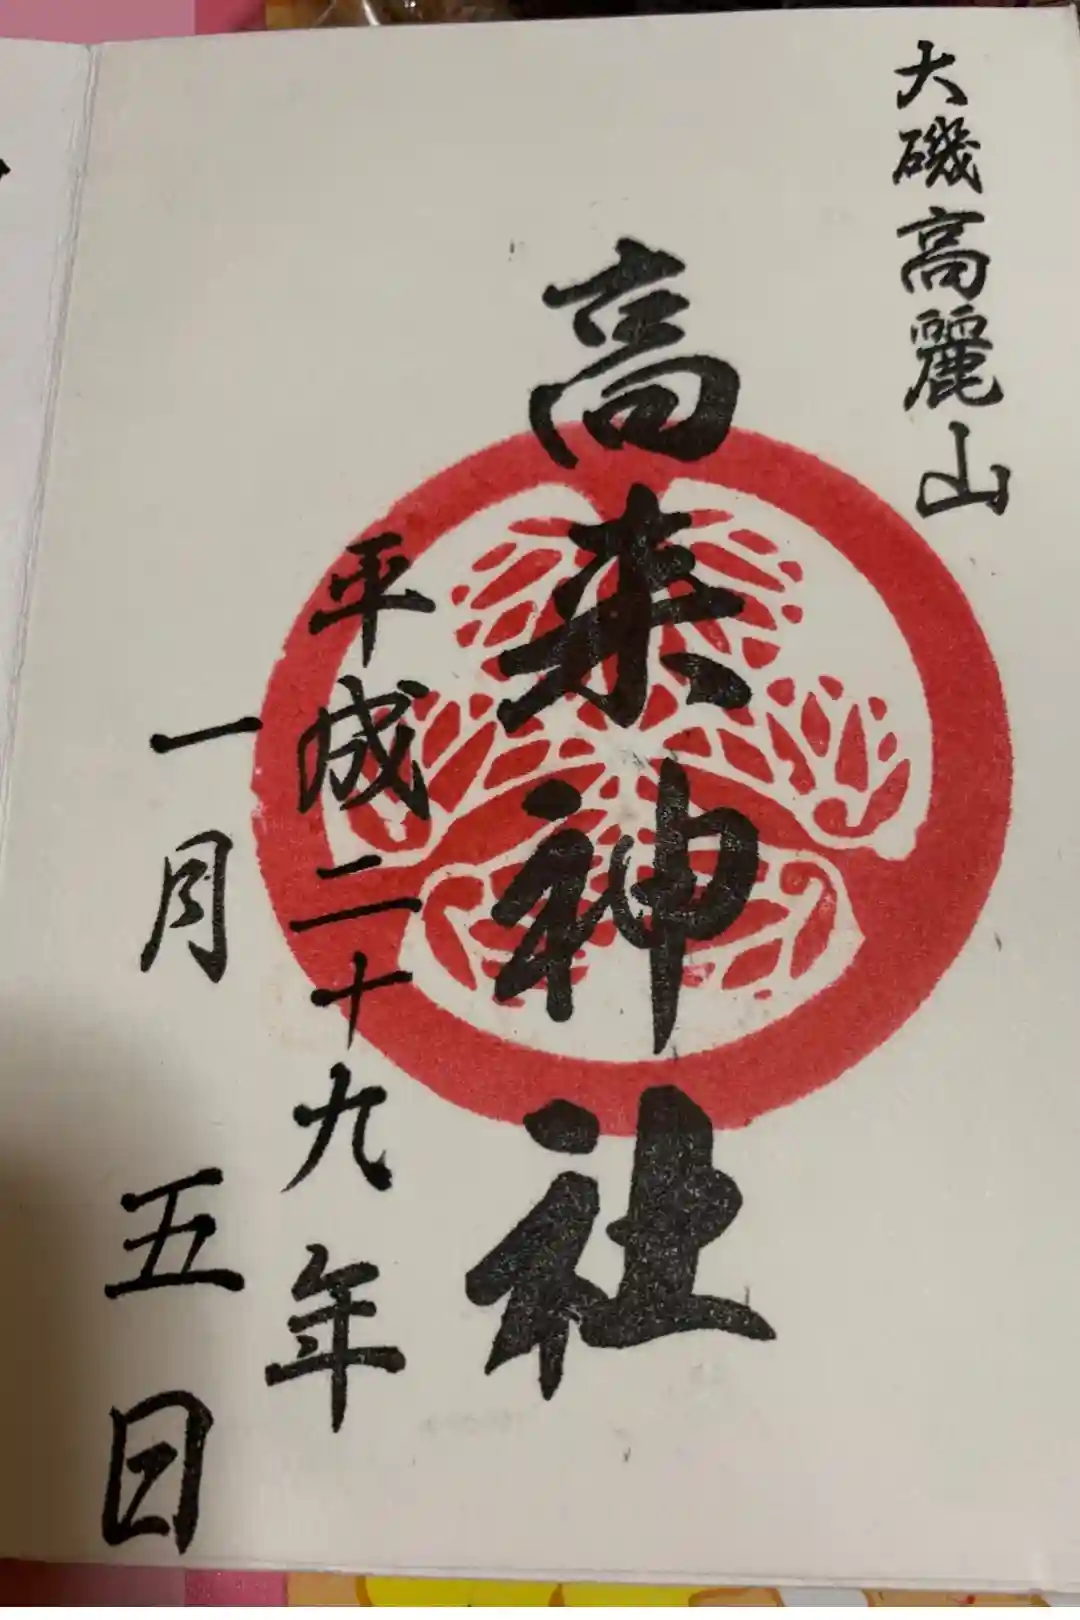 大磯高麗山
高来神社
平成二十九年
一月五日